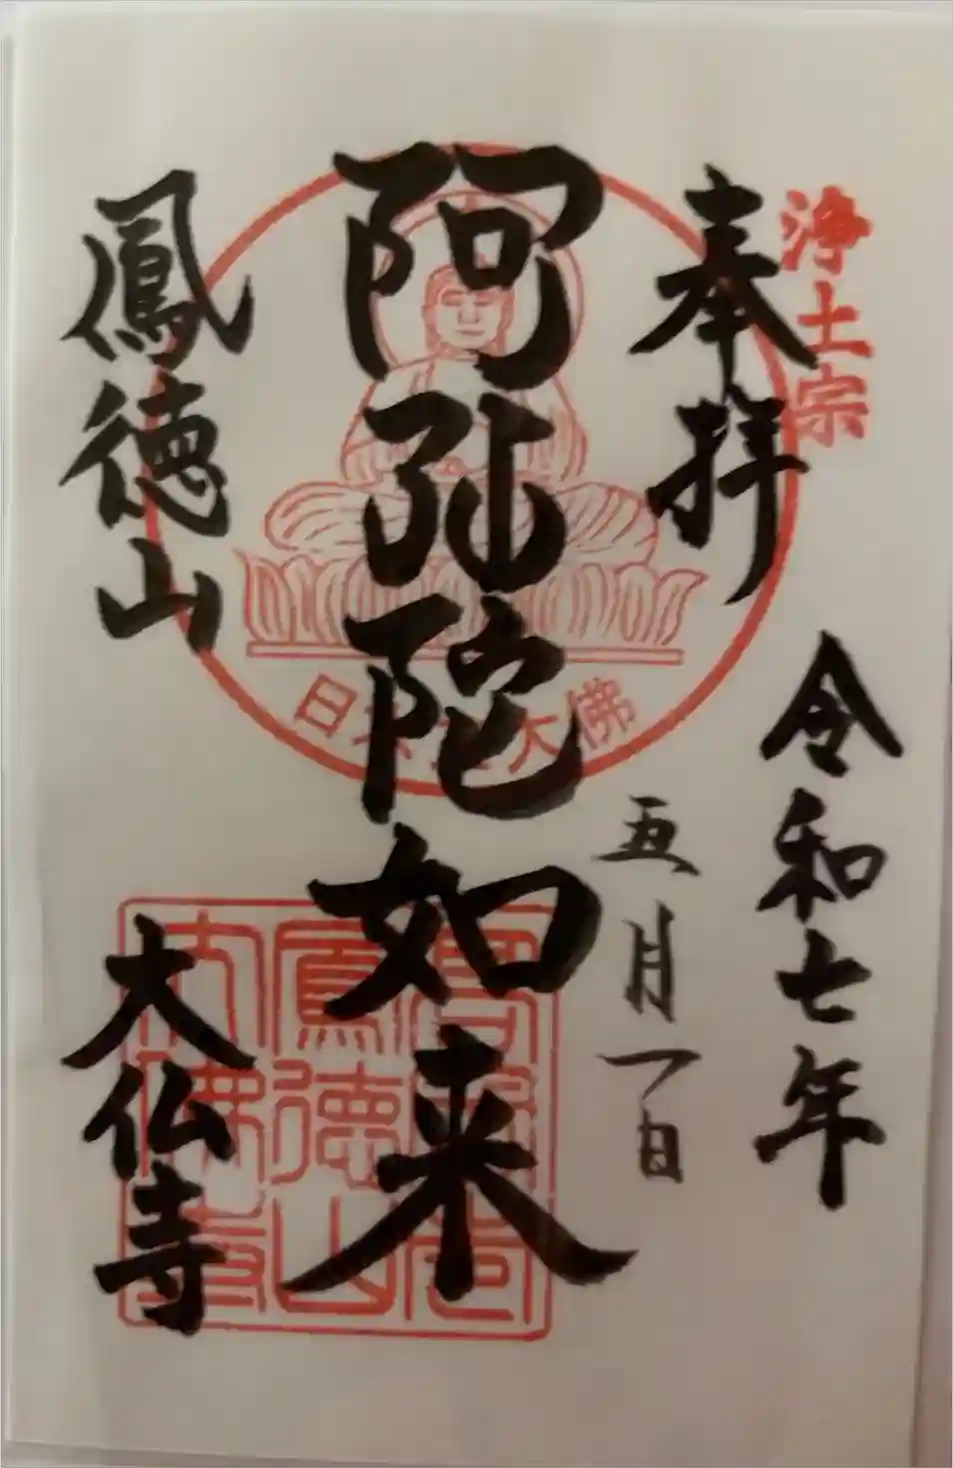 浄土宗
奉拝
令和七年
五月一日
阿弥陀如来
大佛
鳳徳山
大仏寺
鳳徳山